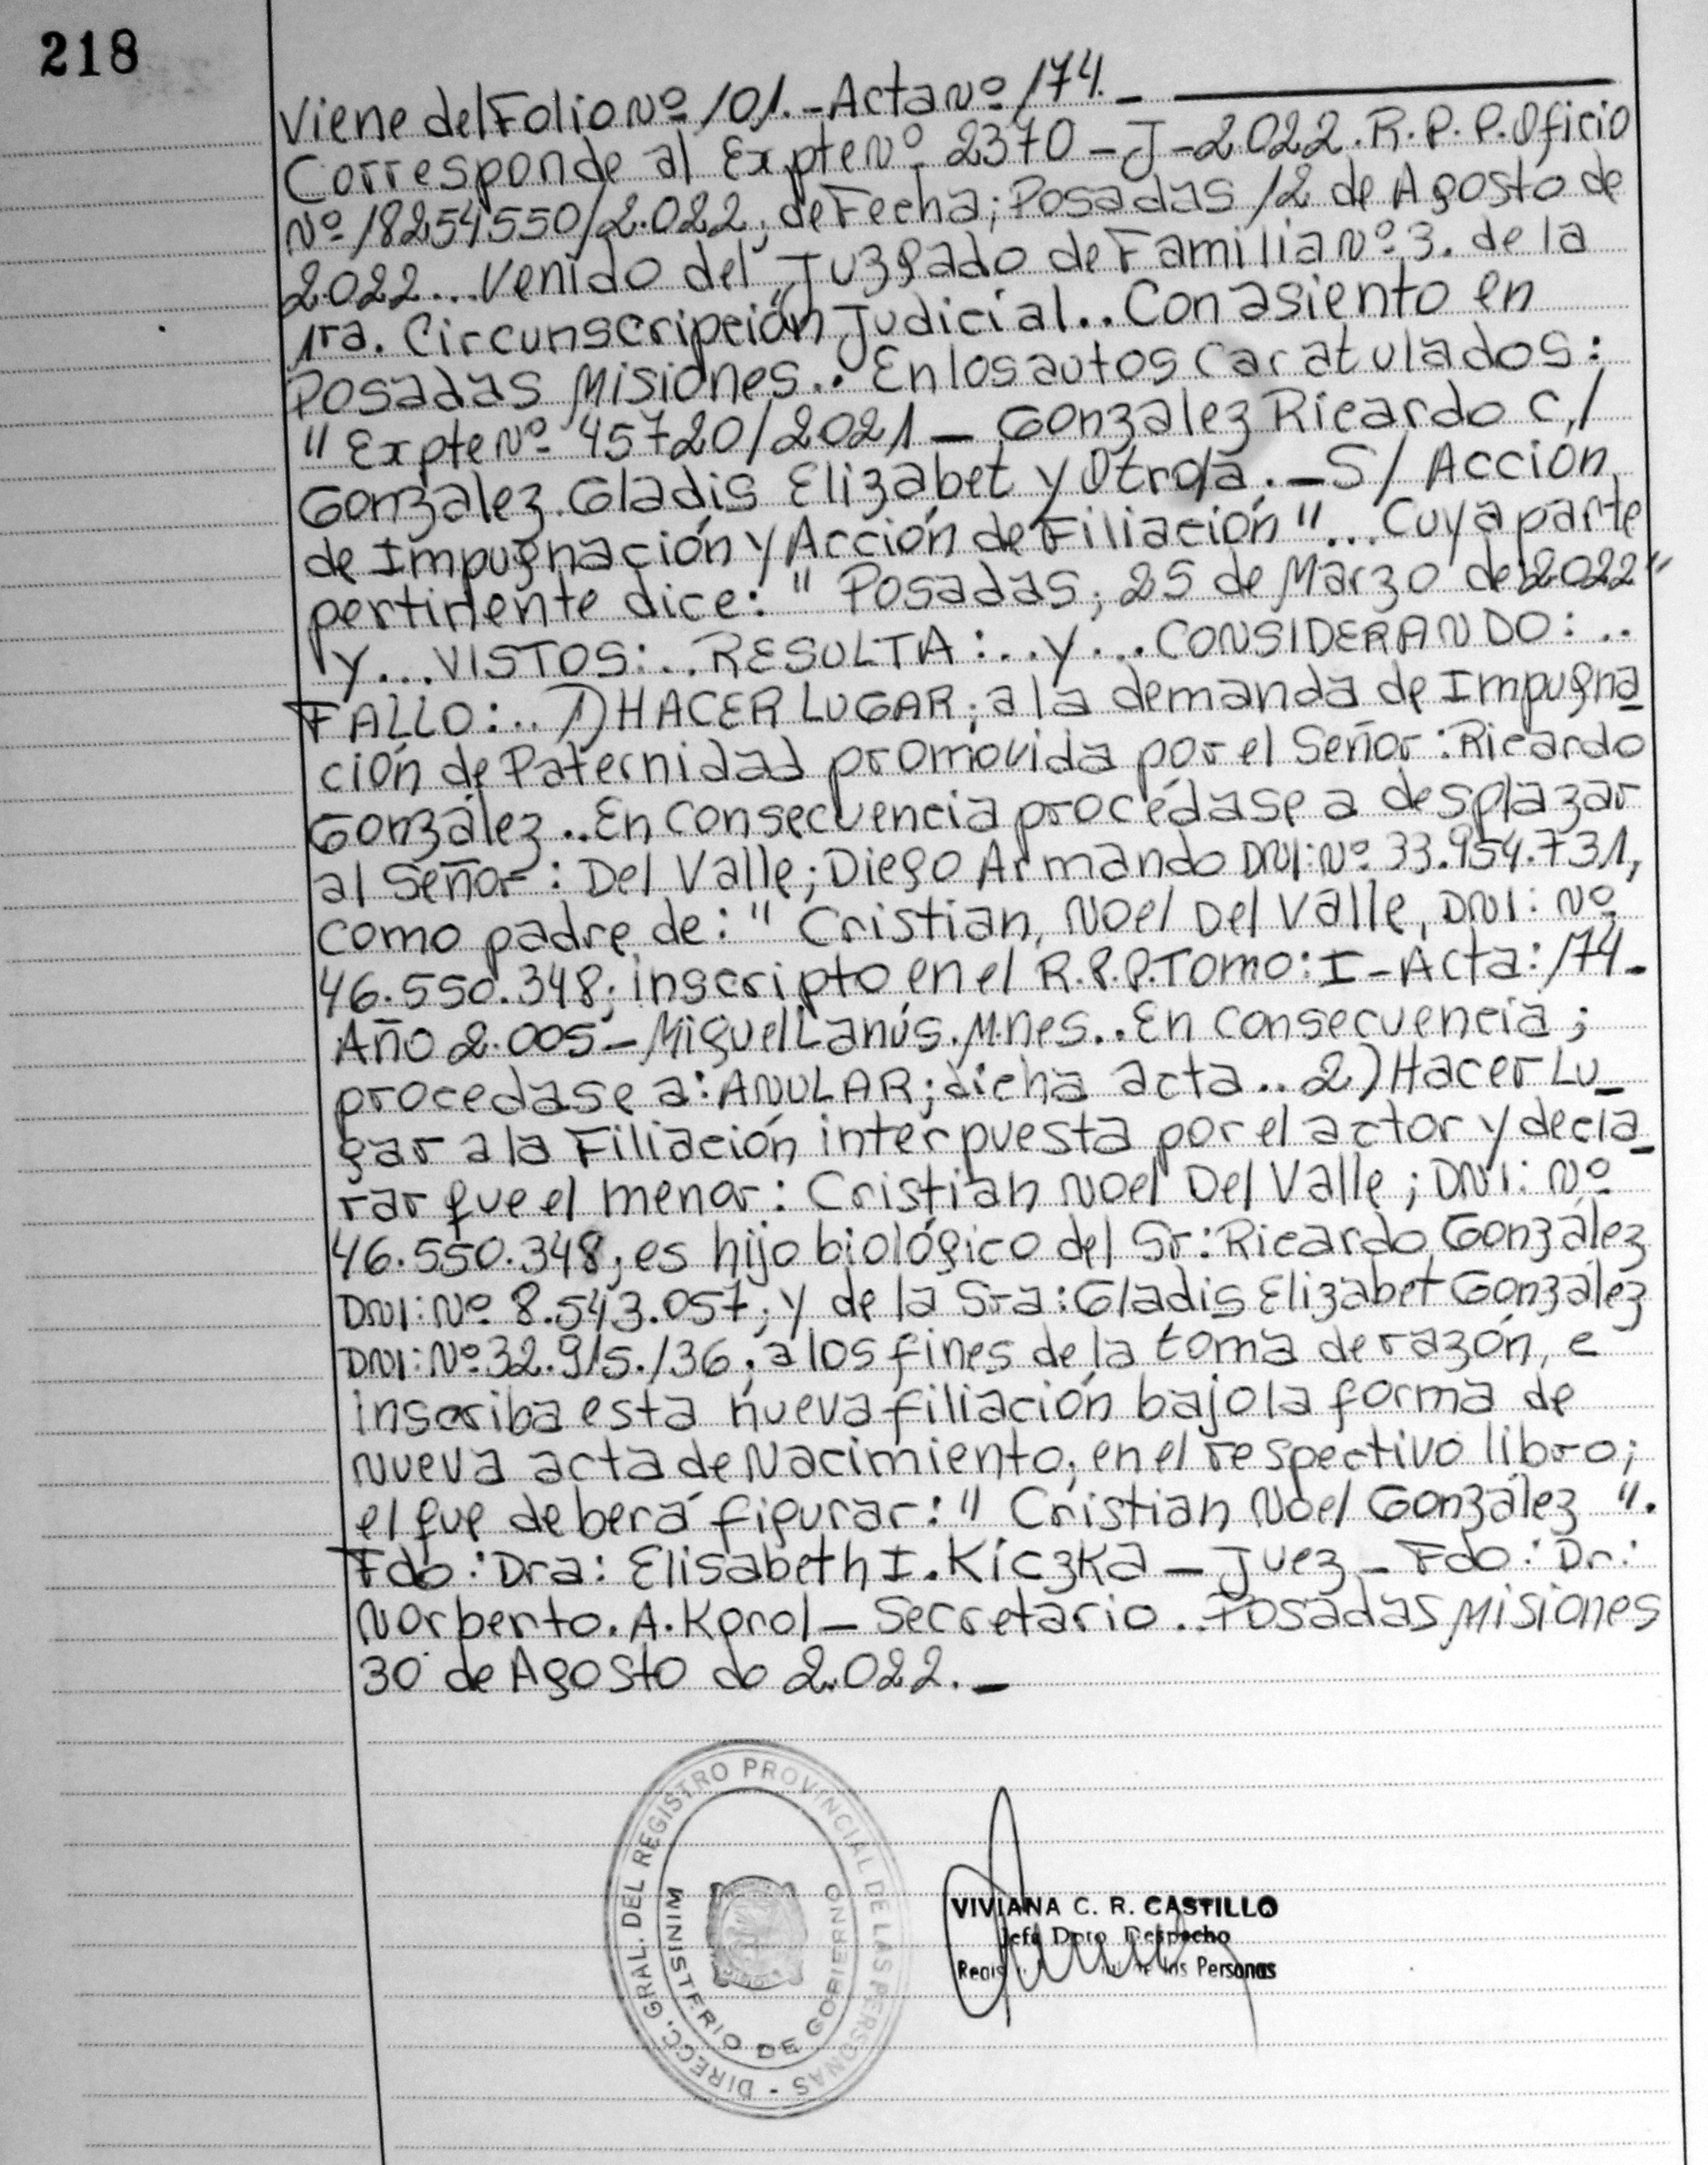 218
Viene del Folio Nº 101.- Acta Nº 174.-
Corresponde al Expte Nº 2370-J-2022.R.P.P. Oficio
Nº 18254550/2.022; de Fecha; Posadas 12 de Agosto de
2.022... Venido del Juzgado de Familia Nº 3. de la
1ra. Circunscripción Judicial.. Con asiento en
Posadas Misiones.. En los autos Caratulados:
" Expte Nº 45720/2021 - González Ricardo C/
González. Gladis Elizabet y Otro/a.- S/ Acción
de Impugnación y Acción de Filiación"... Cuya parte
pertinente dice: " Posadas, 25 de Marzo de 2022"
y... VISTOS:.. RESULTA:..y... CONSIDERANDO:..
FALLO:.. 1) HACER LUGAR; a la demanda de Impugna
ción de Paternidad promovida por el Señor: Ricardo
González.. En Consecuencia procédase a desplazar
al Señor: Del Valle; Diego Armando DNI: Nº 33.954.731,
como padre de: " Cristian, Noel Del Valle, DNI: Nº
46.550.348; inscripto en el R.P.P. Tomo: I - Acta: 174-
Año 2.005- Miguel Lanús. Mnes.. En consecuencia;
procedase a: ANULAR; dicha acta.. 2) Hacer Lu_
gar a la Filiación interpuesta por el actor y decla_
rar que el menor: Cristian Noel Del Valle; DNI: Nº
46.550.348; es hijo biológico del Sr: Ricardo González
DNI: Nº 8.543.057; y de la Sra: Gladis Elizabet González
DNI: Nº 32.915.136; a los fines de la toma de razón, e
inscriba esta nueva filiación bajo la forma de
Nueva acta de Nacimiento; en el respectivo libro;
el que deberá figurar: " Cristian Noel González ".
Fdo: Dra: Elisabeth I. Kiczka - Juez - Fdo: Dr:
Norberto. A. Korol - Secretario.. Posadas Misiones
30 de Agosto de 2.022.-
DIRECC. GRAL. DEL REGISTRO PROVINCIAL DE LAS PERSONAS -
MINISTERIO DE GOBIERNO
VIVIANA C. R. CASTILLO
Jefe Dpto Despacho
de las Personas